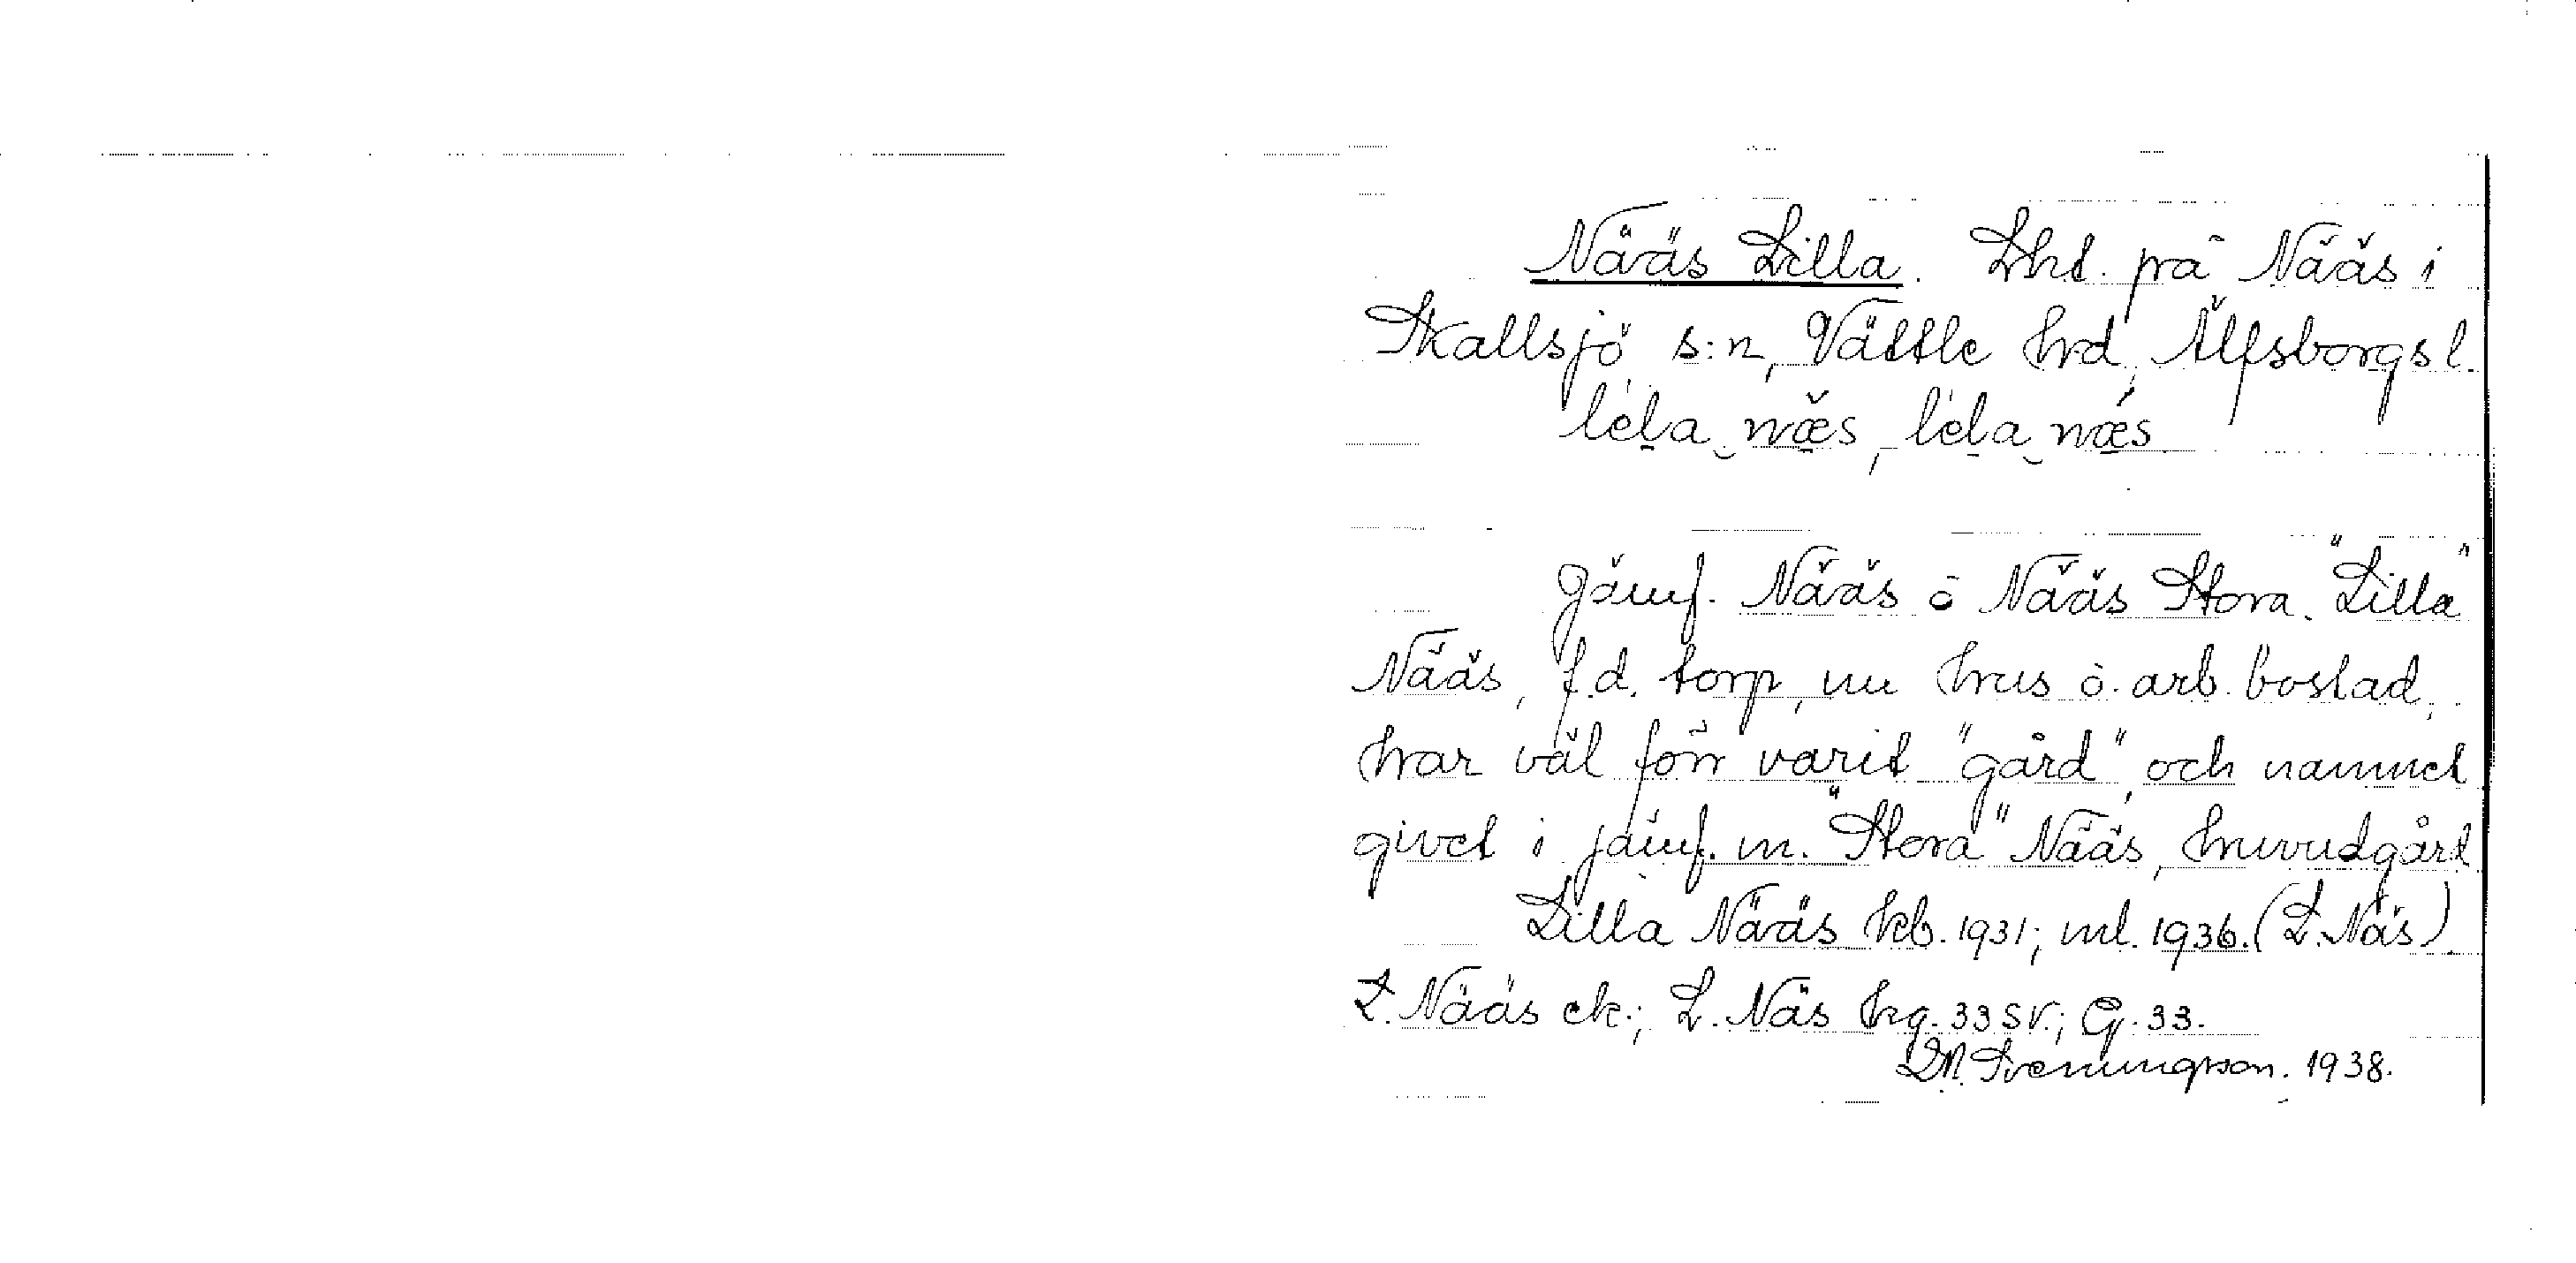 Nääs Lilla. Lht. på Nääs i
Skallsjö s:n, Vättle hrd, Älfsborgs l.
lela næs, lela næs
Jämf. Nääs o Nääs Stora. "Lilla"
Nääs, f.d. torp, nu hus o. arb. bostad,
har väl förr varit "gård", och namnet
givet i jämf. m. "Stora" Nääs, huvudgård
Lilla Nääs kb. 1931; ml. 1936. (L. Näs)
L. Nääs ek.; L. Näs hg. 33 SV.; G. 33.
Sveningson. 1938.